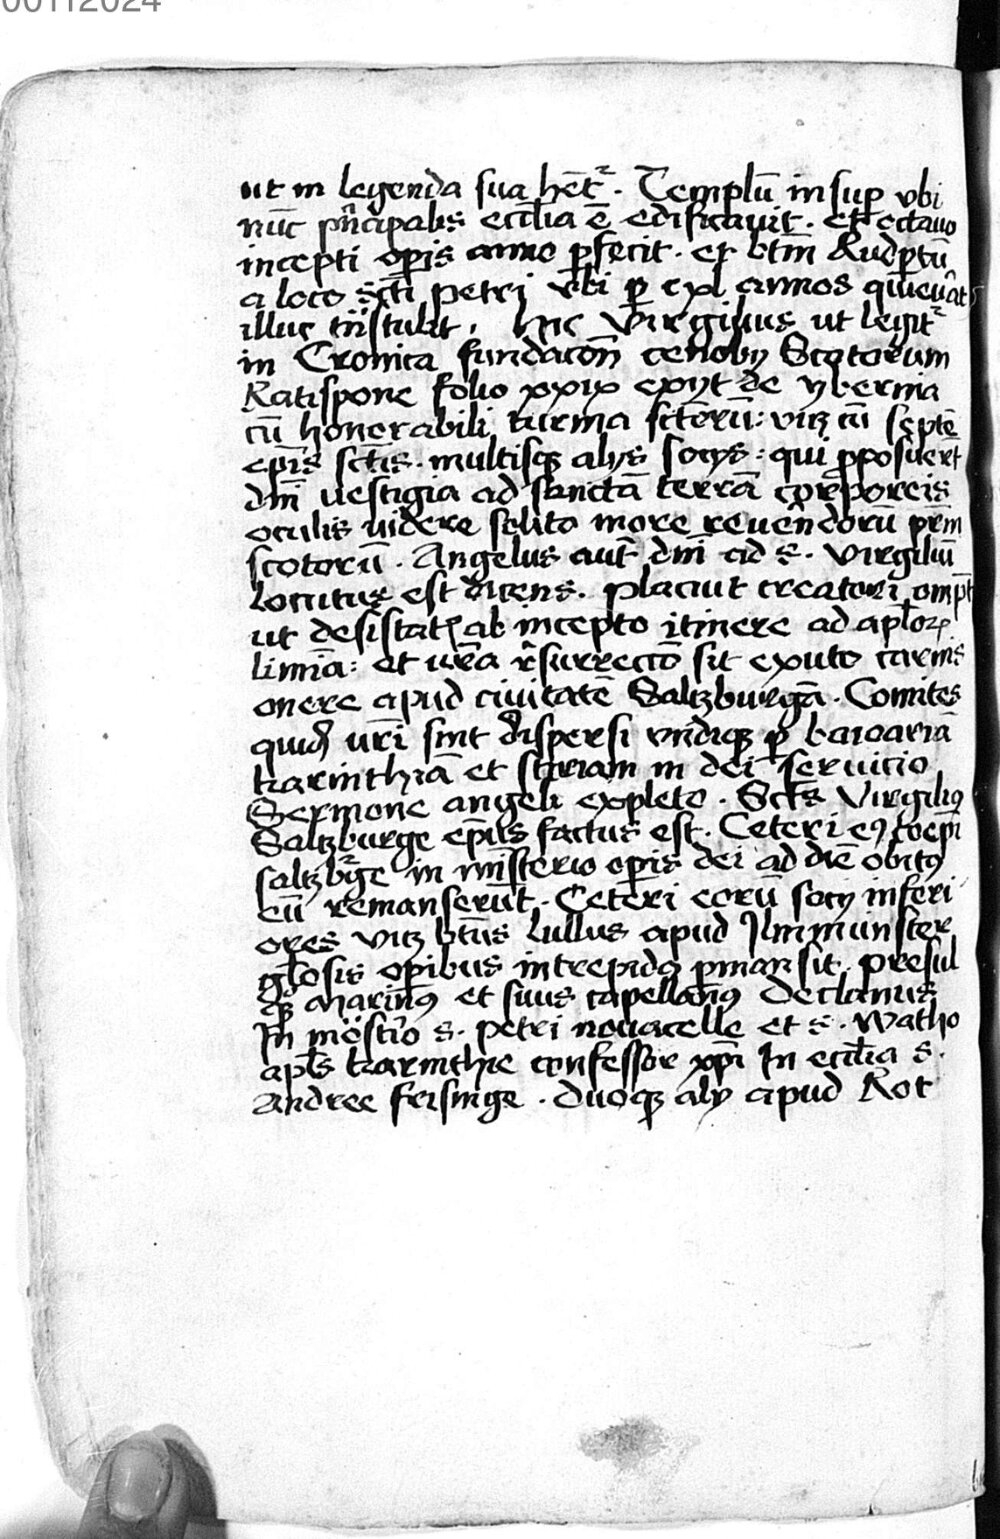 00112024
ut in legenda sua hētr̃ . Templū insup vbi
nūc pn̄cipalis eccl̄ia ē edificauit . et octauo
incepti op̄is anno p̄fecit . et btm̄ Rudp̄tū
a loco sct̄i petri vbi p cxl annos quieu̾at
illuc tn̄stulit . Hic Virgilius ut legitr̃
in Cronica fundacōn̄ cenobij Scotorum
Ratispone folio xxix exijt de ybernia
cū honerabili turma sctōrū : viꝫ cū septē
ep̄is sct̄is . multisqꝫ alijs socijs : qui p̄posuer̄t
dn̄i uestigia ad sanctā terrā corporeis
oculis uidere solito more reuen̄dorū pr̄m
scotorū . Angelus aut̄ dn̄i ad s . Virgiliū
Locutus est dicens . placuit creatori omp̄t
ut desistatꝭ ab incepto itinere ad apl̄oꝝ
limīa : et ur̄a r̄surrectō sit exuto carnis
onere apud ciuitatē Saltzburgā . Comites
quidē ur̄i sint dispersi vndiqꝫ p baioariā
karinthiā et stiriam in dei seruicio
Sermone angeli expleto . Sct̄s Virgiliꝰ
Saltzburge ep̄us factus est . Ceteri eꝰ coep̄i
saltzburge in mn̄isterio op̄is dei ad diē obitꝰ
eū remanserūt . Ceteri eorū socij inferi
ores viꝫ bt̄us Lullus apud Ilmmunster
gl̄osis op̄ibus intrepidꝰ pmansit . presul
qꝫ Marinꝰ et suus capellanꝰ Declanus
In mōst̾io s . petri nouacelle et s . Watho
apl̄s karinthie confessor xp̄i In eccl̄ia s .
Andree frisinge . duoqꝫ alij apud Rot